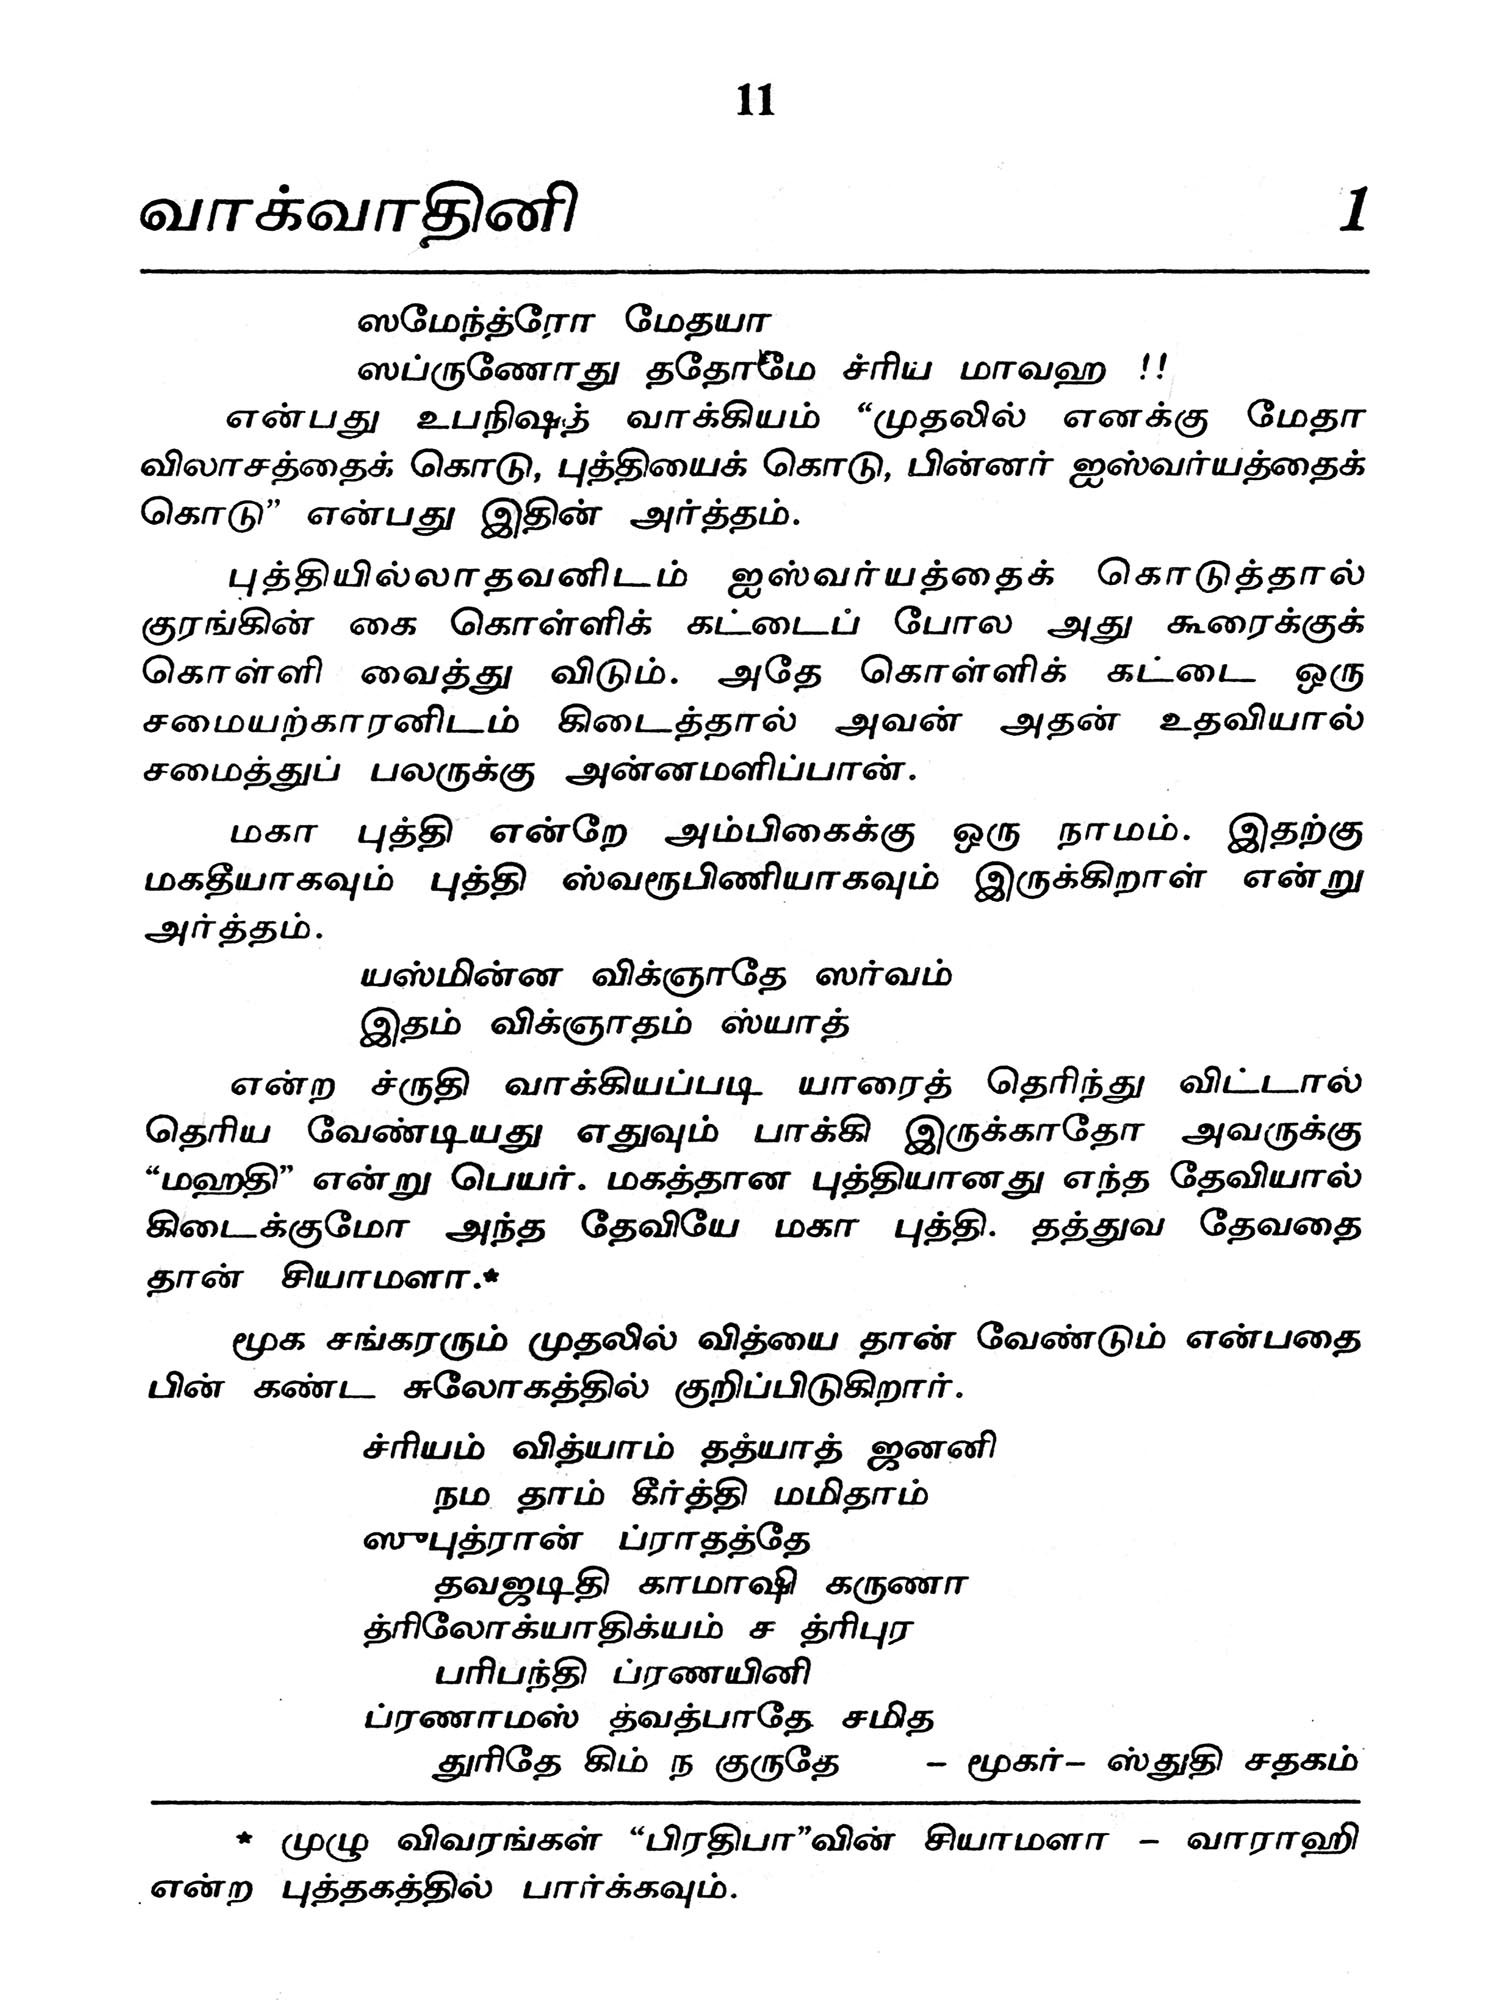 11
வாக்வாதினி 1
ஸமேந்த்ரோ மேதயா
ஸப்ருணோது ததோமே ச்ரிய மாவஹ !!
என்பது உபநிஷத் வாக்கியம் “முதலில் எனக்கு மேதா
விலாசத்தைக் கொடு, புத்தியைக் கொடு, பின்னர் ஐஸ்வர்யத்தைக்
கொடு” என்பது இதின் அர்த்தம்.
புத்தியில்லாதவனிடம் ஐஸ்வர்யத்தைக் கொடுத்தால்
குரங்கின் கை கொள்ளிக் கட்டைப் போல அது கூரைக்குக்
கொள்ளி வைத்து விடும். அதே கொள்ளிக் கட்டை ஒரு
சமையற்காரனிடம் கிடைத்தால் அவன் அதன் உதவியால்
சமைத்துப் பலருக்கு அன்னமளிப்பான்.
மகா புத்தி என்றே அம்பிகைக்கு ஒரு நாமம். இதற்கு
மகதீயாகவும் புத்தி ஸ்வரூபிணியாகவும் இருக்கிறாள் என்று
அர்த்தம்.
யஸ்மின்ன விக்ஞாதே ஸர்வம்
இதம் விக்ஞாதம் ஸ்யாத்
என்ற ச்ருதி வாக்கியப்படி யாரைத் தெரிந்து விட்டால்
தெரிய வேண்டியது எதுவும் பாக்கி இருக்காதோ அவருக்கு
“மஹதி” என்று பெயர். மகத்தான புத்தியானது எந்த தேவியால்
கிடைக்குமோ அந்த தேவியே மகா புத்தி. தத்துவ தேவதை
தான் சியாமளா.*
மூக சங்கரரும் முதலில் வித்யை தான் வேண்டும் என்பதை
பின் கண்ட சுலோகத்தில் குறிப்பிடுகிறார்.
ச்ரியம் வித்யாம் தத்யாத் ஜனனி
நம தாம் கீர்த்தி மமிதாம்
ஸுபுத்ரான் ப்ராதத்தே
தவஜடிதி காமாஷி கருணா
த்ரிலோக்யாதிக்யம் ச த்ரிபுர
பரிபந்தி ப்ரணயினி
ப்ரணாமஸ் த்வத்பாதே சமித
துரிதே கிம் ந குருதே – மூகர்– ஸ்துதி சதகம்
* முழு விவரங்கள் “பிரதிபா”வின் சியாமளா – வாராஹி
என்ற புத்தகத்தில் பார்க்கவும்.